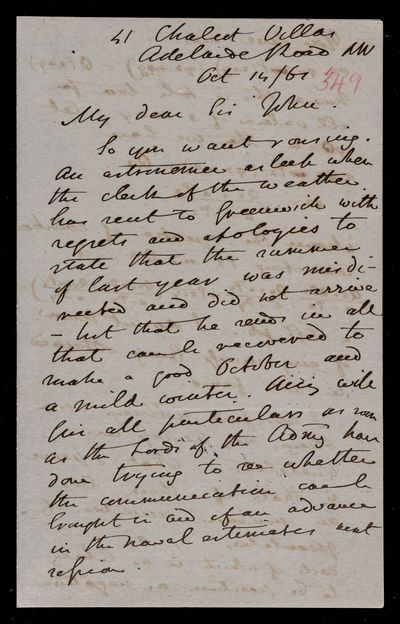 41 Chalcot Villas
Adelaide Road NW
Oct 14/61
349
My dear Sir John.
So you want rousing.
An astronomer asleep when
the clerk of the weather
has sent to Greenwich with
regrets and apologies to
state that the summer
of last year was misdi-
rected and did not arrive
– but that he sends in all
that can be recovered to
make a good October and
a mild winter. Airy will
give all particulars as soon
as the Lords of the Admy have
done trying to see whether
the communication can be
brought in aid of an advance
in the naval estimates next
session.